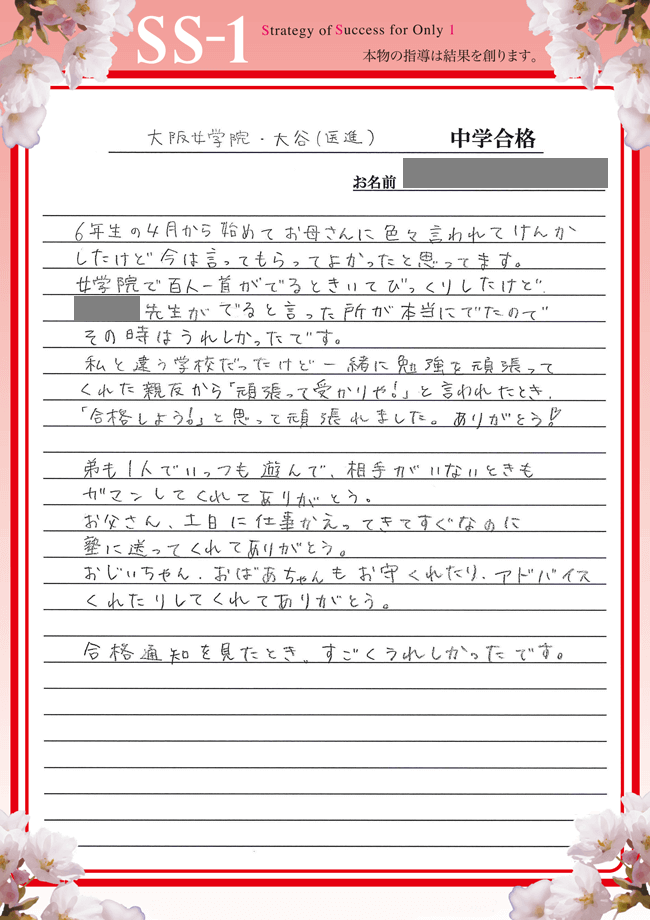 SS-1
Strategy of Success for Only 1
本物の指導は結果を創ります。
大阪女学院・大谷(医進) 中学合格
お名前
6年生の4月から始めてお母さんに色々言われてけんか
したけど今は言ってもらってよかったと思ってます。
女学院で百人一首がでるときいてびっくりしたけど、
先生がでると言った所が本当にでたので
その時はうれしかったです。
私と違う学校だったけど一緒に勉強を頑張って
くれた親友から「頑張って受かりや!」と言われたとき、
「合格しよう!」と思って頑張れました。ありがとう!
弟も1人でいっつも遊んで、相手がいないときも
ガマンしてくれてありがとう。
お父さん、土日に仕事かえってきてすぐなのに
塾に送ってくれてありがとう。
おじいちゃん、おばあちゃんもお守くれたり、アドバイス
くれたりしてくれてありがとう。
合格通知を見たとき、すごくうれしかったです。